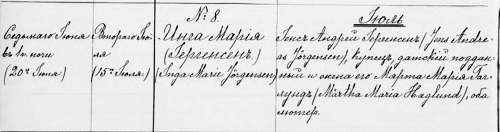 № 8.
Іюль
Седьмаго Іюня
въ 1 ч. ночи
(20го Іюня)
Втораго Ію-
ля
(15го Іюля.)
Инга Марія
(Іергенсенъ.)
(Inga Marie Jörgensen)
Іенсъ Андрей Іергенсенъ (Jens Andre-
as Jörgensen), купецъ, датскій поддан-
ный и жена его Марта Марія Гаг-
лундъ (Märtha Maria Haglund), оба
лютер.